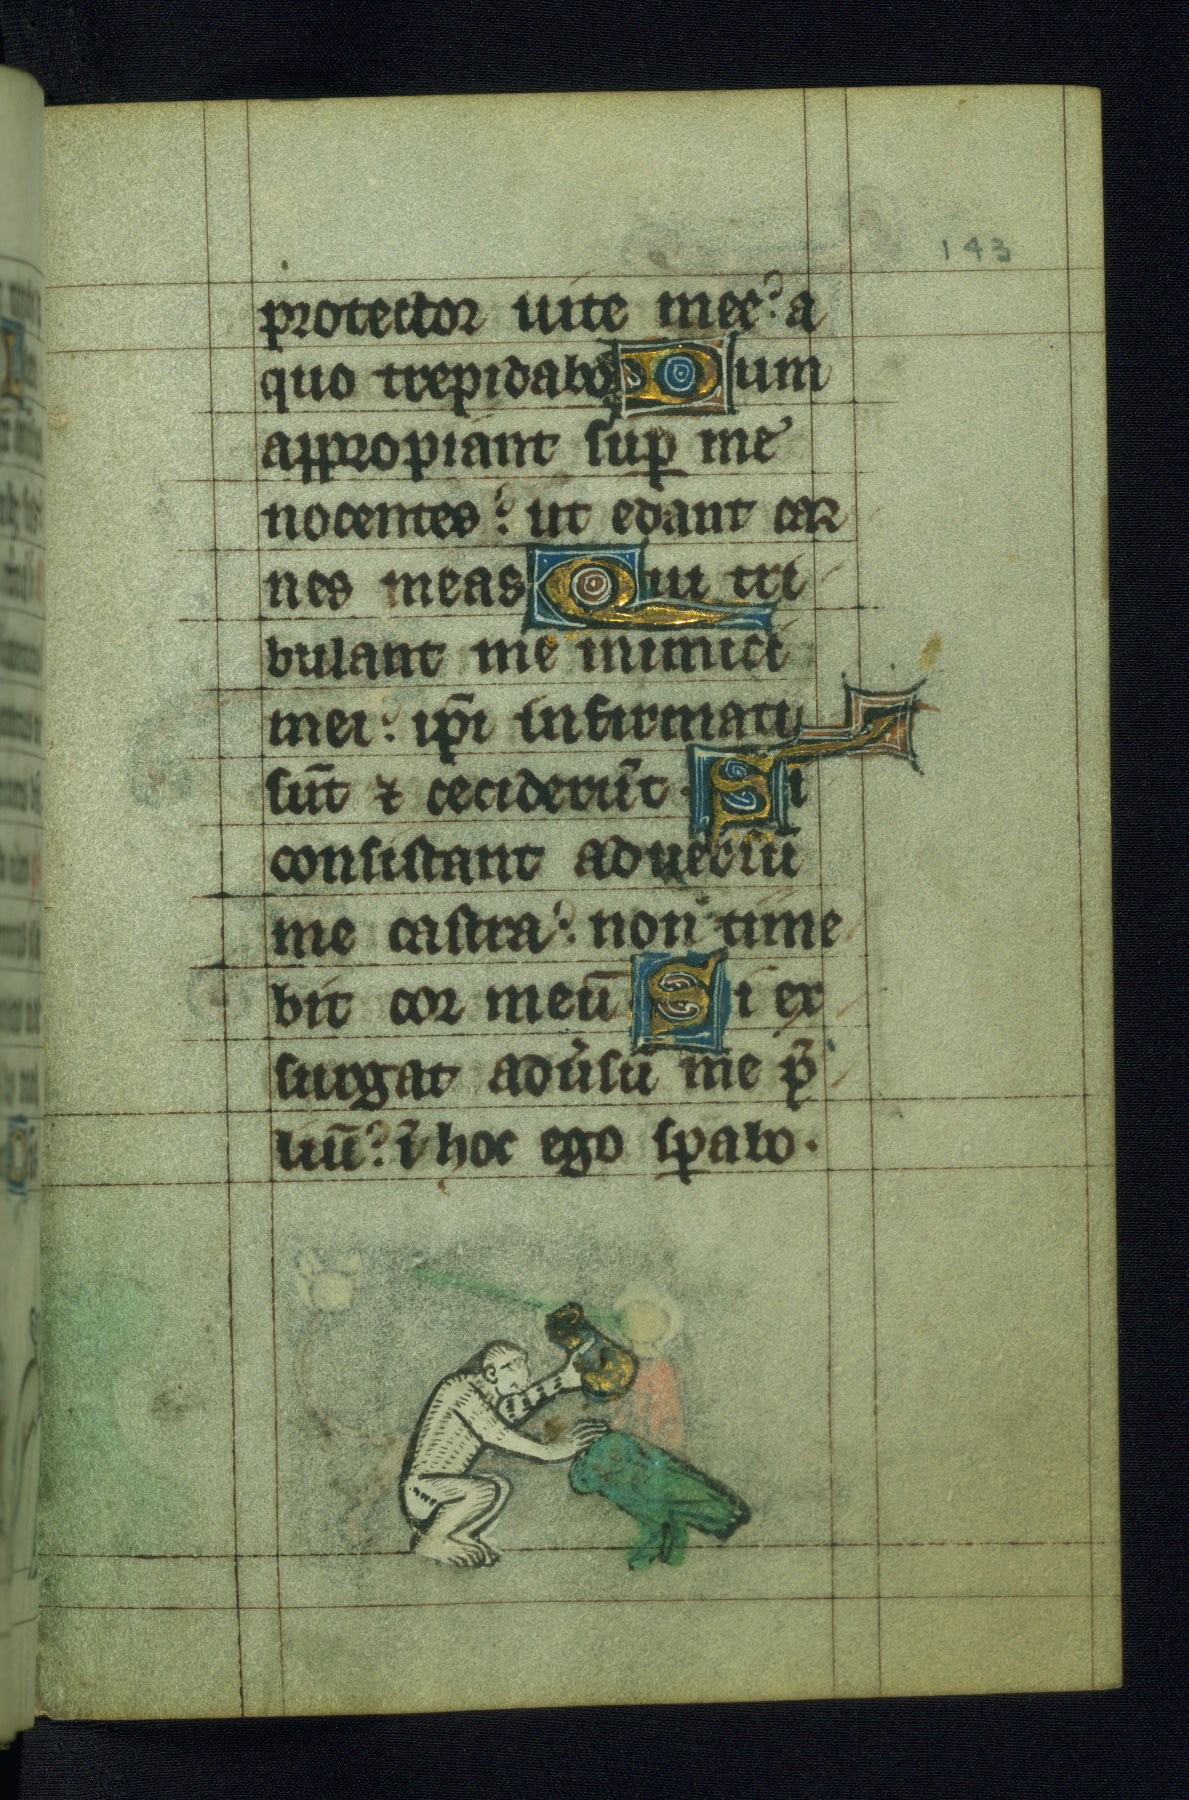 143
protector uite mee? a
quo trepidabo Dum
appropiant sup me
nocentes? ut edant car
nes meas Qui tri
bulant me inimici
mei? ip̄i infirmati
sūt ⁊ ceciderūt. Si
consistant aduersū
me castra? non time
bit cor meū Si ex
surgat adũsū me p̄
liū? ī hoc ego sꝑabo.